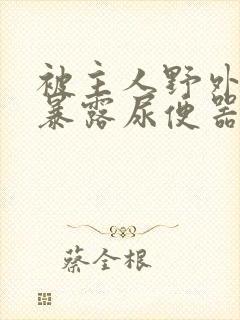 被主人野外
暴露尿便器
蔡全根